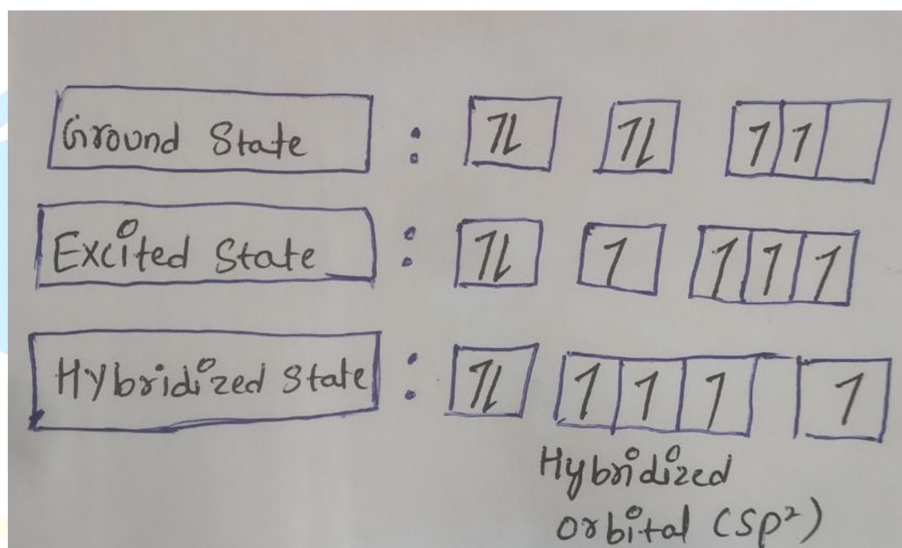 Ground State : ⥮ ⥮ 1 1
Excited State : ⥮ 1 1 1 1
Hybridized State : ⥮ 1 1 1 1
Hybridized
orbital (sp²)